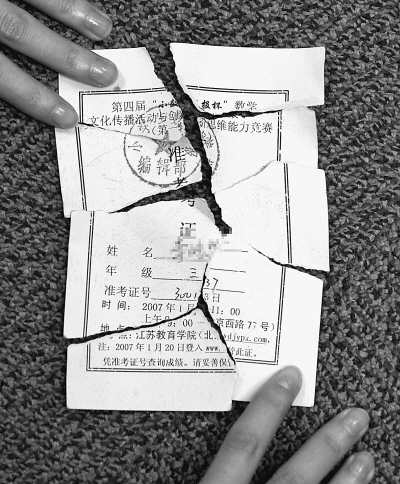 第四届"小 杯"数学
文化传播活动与创 思维能力竞赛
(第
编辑部
准考证
姓 名
年 级 三
准考证号 3001 37
时间: 2007年1月 3日
上午9:00－11:00
地点:江苏教育学院(北京西路77号)
注: 2007年1月20日登入www. edjypz.com,
凭准考证号查询成绩。请妥善保 管此证。